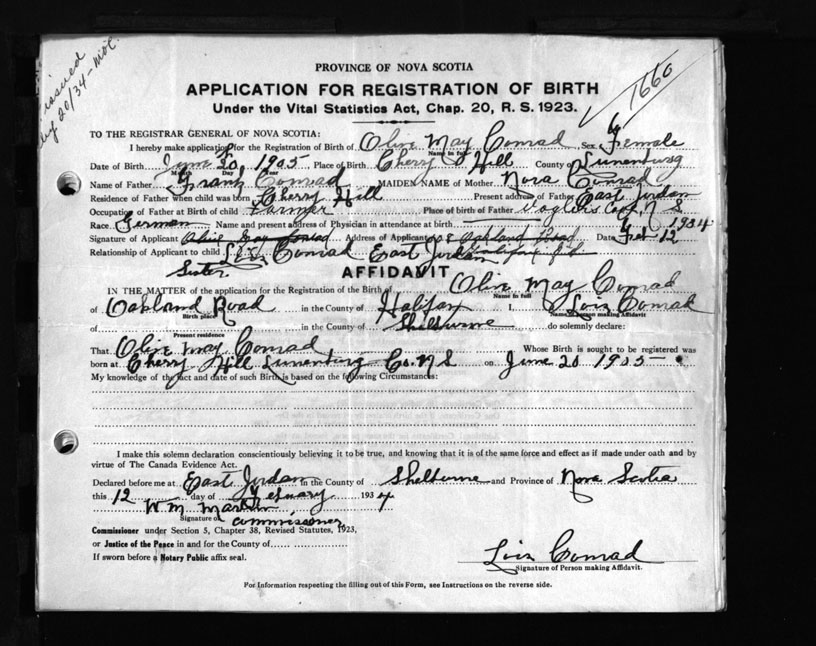 issued
20/34
1660
PROVINCE OF NOVA SCOTIA
APPLICATION FOR REGISTRATION OF BIRTH
Under the Vital Statistics Act, Chap. 20, R. S. 1923.
TO THE REGISTRAR GENERAL OF NOVA SCOTIA:
I hereby make application for the Registration of Birth of Olive May Conrad Sex Female
Name in full
Date of Birth June 20 1905 Place of Birth Cherry Hill County of Lunenburg
Month Day Year
Name of Father Frank Conrad MAIDEN NAME of Mother Nora Conrad
Residence of Father when child was born Cherry Hill Present address of Father East Jordan
Occupation of Father at Birth of child Farmer Place of birth of Father Voglers Cove, N S
Race German Name and present address of Physician in attendance at birth
Signature of Applicant Olive May Conrad Address of Applicant 8 Oakland Road Date Feb 12 1934
Relationship of Applicant to child Conrad East Jordan
Sister
AFFIDAVIT
IN THE MATTER of the application for the Registration of the Birth of Olive May Conrad
Name in full
of Oakland Road in the County of Halifax I, Lois Conrad
Birth place Name of person making Affidavit
of in the County of Shelburne do solemnly declare:
Present residence
That Olive May Conrad Whose Birth is sought to be registered was
born at Cherry Hill Lunenburg Co. N S on June 20 1905
My knowledge of the fact and date of such Birth is based on the following Circumstances:
I make this solemn declaration conscientiously believing it to be true, and knowing that it is of the same force and effect as if made under oath and by
virtue of The Canada Evidence Act.
Declared before me at East Jordan in the County of Shelburne and Province of Nova Scotia
this 12 day of February 1934
W. M. Martin
Signature of Commissioner
Commissioner under Section 5, Chapter 38, Revised Statutes, 1923,
or Justice of the Peace in and for the County of
If sworn before a Notary Public affix seal.
Lois Conrad
Signature of Person making Affidavit.
For Information respecting the filling out of this Form, see Instructions on the reverse side.